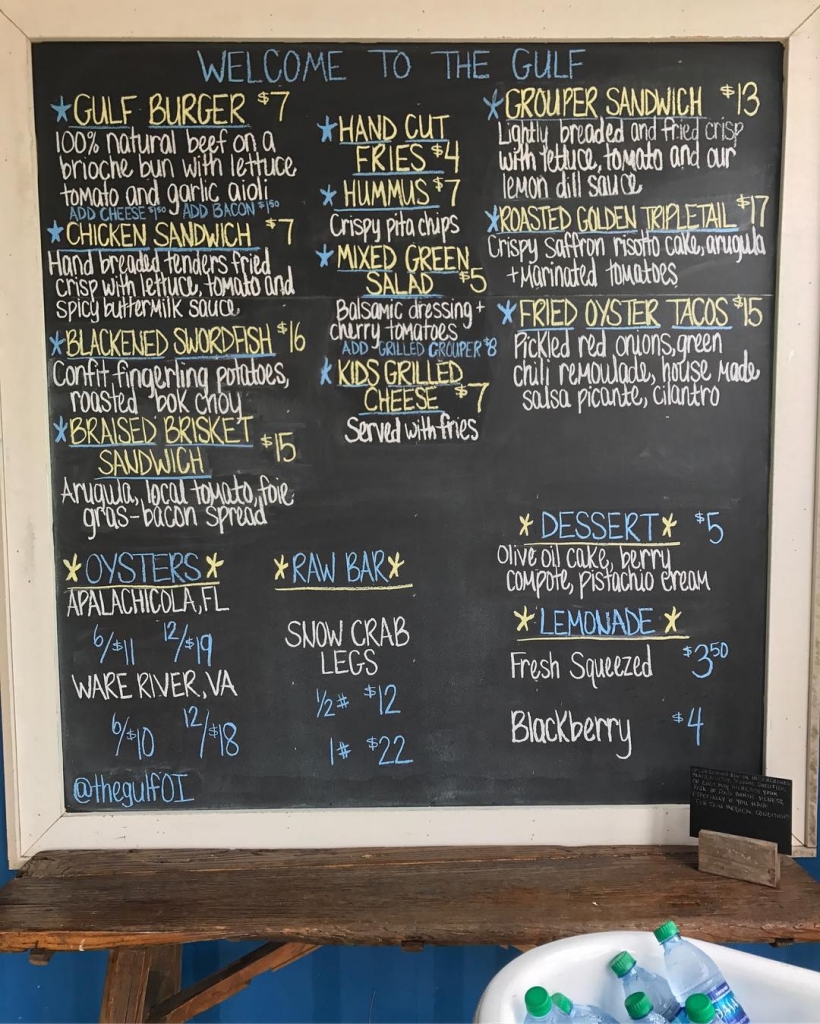 WELCOME TO THE GULF
GULF BURGER $7
100% natural beef on a
brioche bun with lettuce
tomato and garlic aioli
ADD CHEESE $1.50 ADD BACON $1.50
CHICKEN SANDWICH $7
Hand breaded tenders fried
crisp with lettuce, tomato and
spicy buttermilk sauce
BLACKENED SWORDFISH $16
Confit fingerling potatoes,
roasted bok choy
BRAISED BRISKET
SANDWICH $15
Arugula, local tomato, foie
gras-bacon spread
HAND CUT
FRIES $4
HUMMUS $7
Crispy pita chips
MIXED GREEN
SALAD $5
Balsamic dressing +
cherry tomatoes
ADD GRILLED GROUPER $8
KIDS GRILLED
CHEESE $7
Served with fries
GROUPER SANDWICH $13
Lightly breaded and fried crisp
with lettuce, tomato and our
lemon dill sauce
ROASTED GOLDEN TRIPLETAIL $17
Crispy saffron risotto cake, arugula
+ Marinated tomatoes
FRIED OYSTER TACOS $15
Pickled red onions, green
chili remoulade, house made
salsa picante, cilantro
OYSTERS
APALACHICOLA, FL
6/$11 12/$19
WARE RIVER, VA
6/$10 12/$18
@thegulfOI
RAW BAR
SNOW CRAB
LEGS
1/2# $12
1# $22
DESSERT $5
Olive oil cake, berry
compote, pistachio cream
LEMONADE
Fresh Squeezed $3.50
Blackberry $4